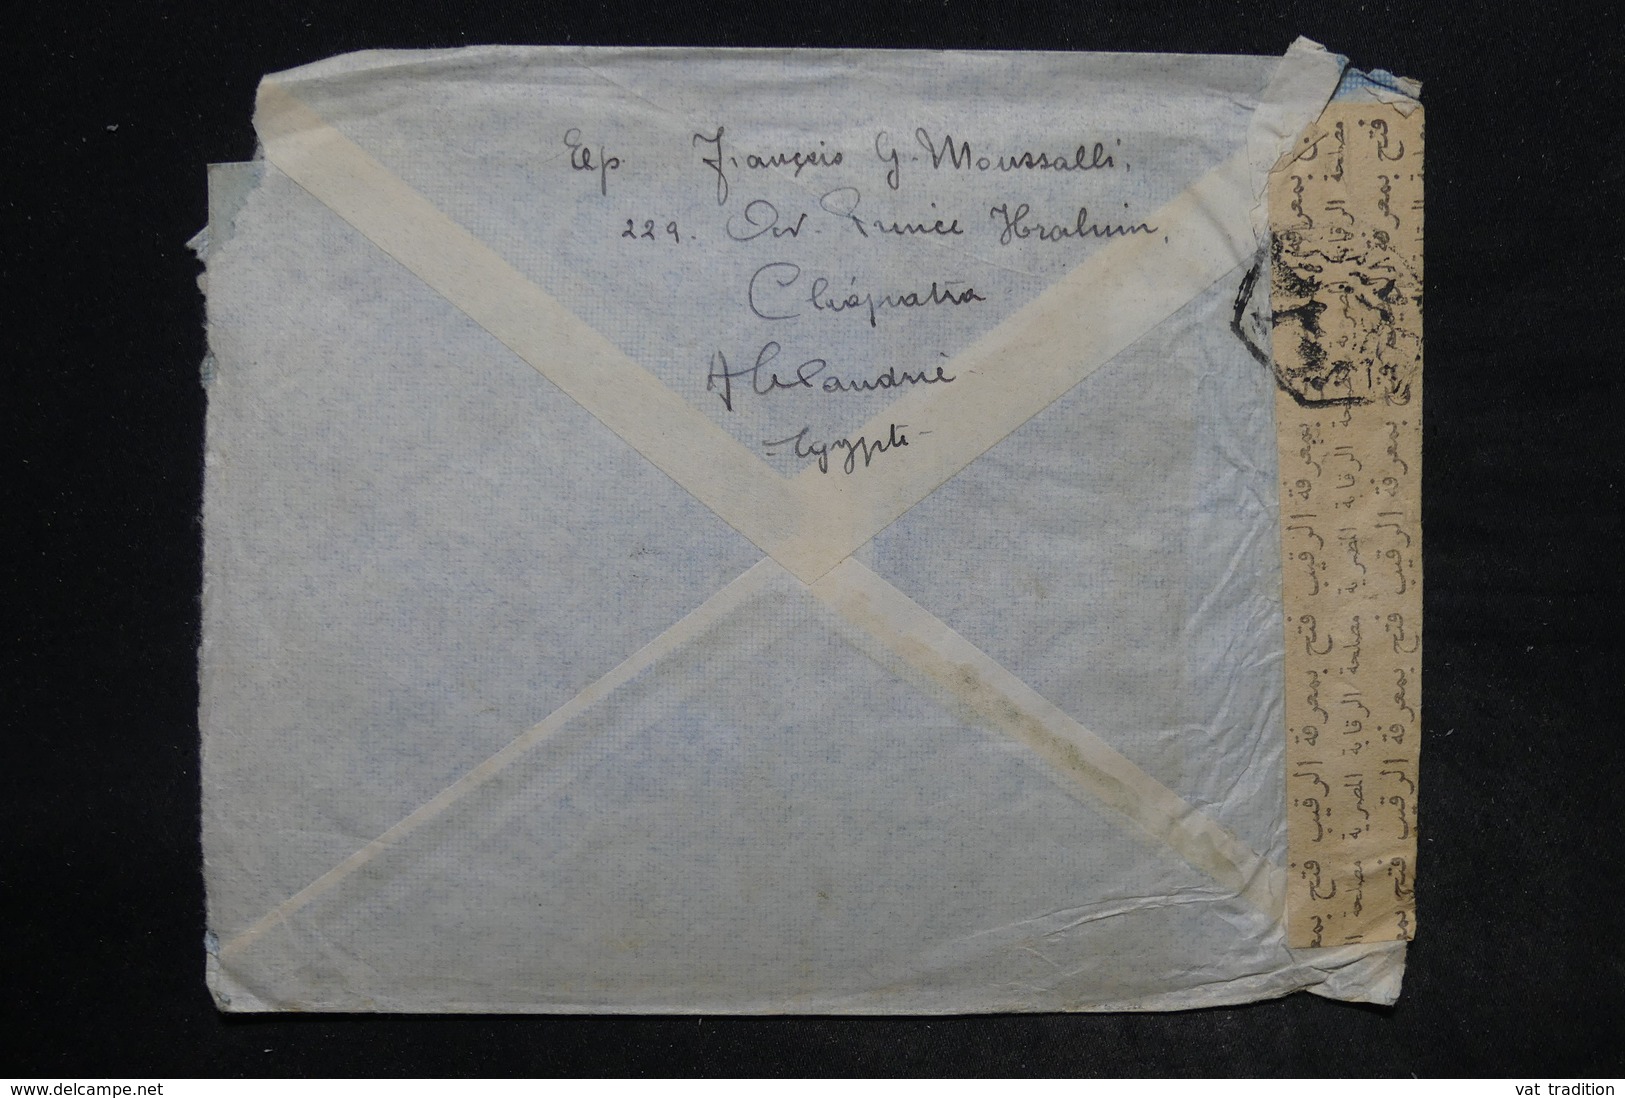 Exp. François G. Moussalli.
229. Av. Prince Ibrahim,
Cléopatra
Alexandrie
- Egypte -
فتح بمعرفة الرقيب فتح بمعرفة الرقيب فتح بمعرفة الرقيب فتح بمعرفة
مصلحة الرقابة المصرية مصلحة الرقابة المصرية مصلحة الرقابة المصرية مصلحة
فتح بمعرفة الرقيب فتح بمعرفة الرقيب فتح بمعرفة الرقيب فتح
delcampe.net
vat tradition